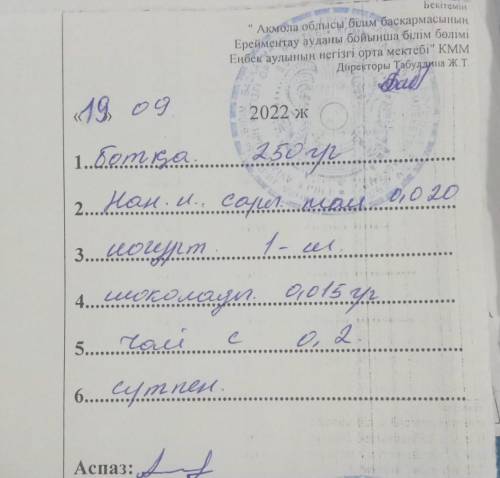 Бекітемін
" Ақмола облысы білім басқармасының
Ерейментау ауданы бойынша білім бөлімі
Еңбек ауылының негізгі орта мектебі" КММ
Директоры Табулдина Ж Т
«19» 09 2022 ж
1. ботқа. 250 гр
2. Нан. и. сарл. май 0,020
3. йогурт. 1- ш.
4. шоколады. 0,015 гр
5. чай с 0,2.
6. сүтпен.
Аспаз: